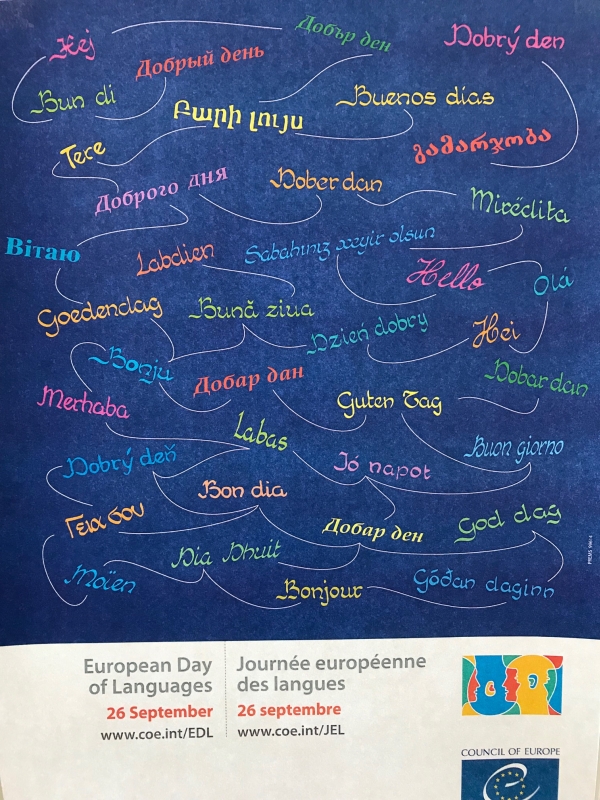 Hej
Добър ден
Dobrý den
Добрый день
Bun di
Buenos días
Բարի լույս
Tere
გამარჯობა
Доброго дня
Dober dan
Mirëdita
Вiтаю
Labdien
Sabahınız xeyir olsun
Hello
Olá
Goedendag
Bună ziua
Dzień dobry
Hei
Bonju
Добар дан
Dobar dan
Merhaba
Guten Tag
Labas
Buon giorno
Dobrý deň
Jó napot
Bon dia
Γεια σου
Добар ден
God dag
Dia Dhuit
Moïen
Bonjour
Góðan daginn
European Day
of Languages
26 September
www.coe.int/EDL
Journée européenne
des langues
26 septembre
www.coe.int/JEL
COUNCIL OF EUROPE